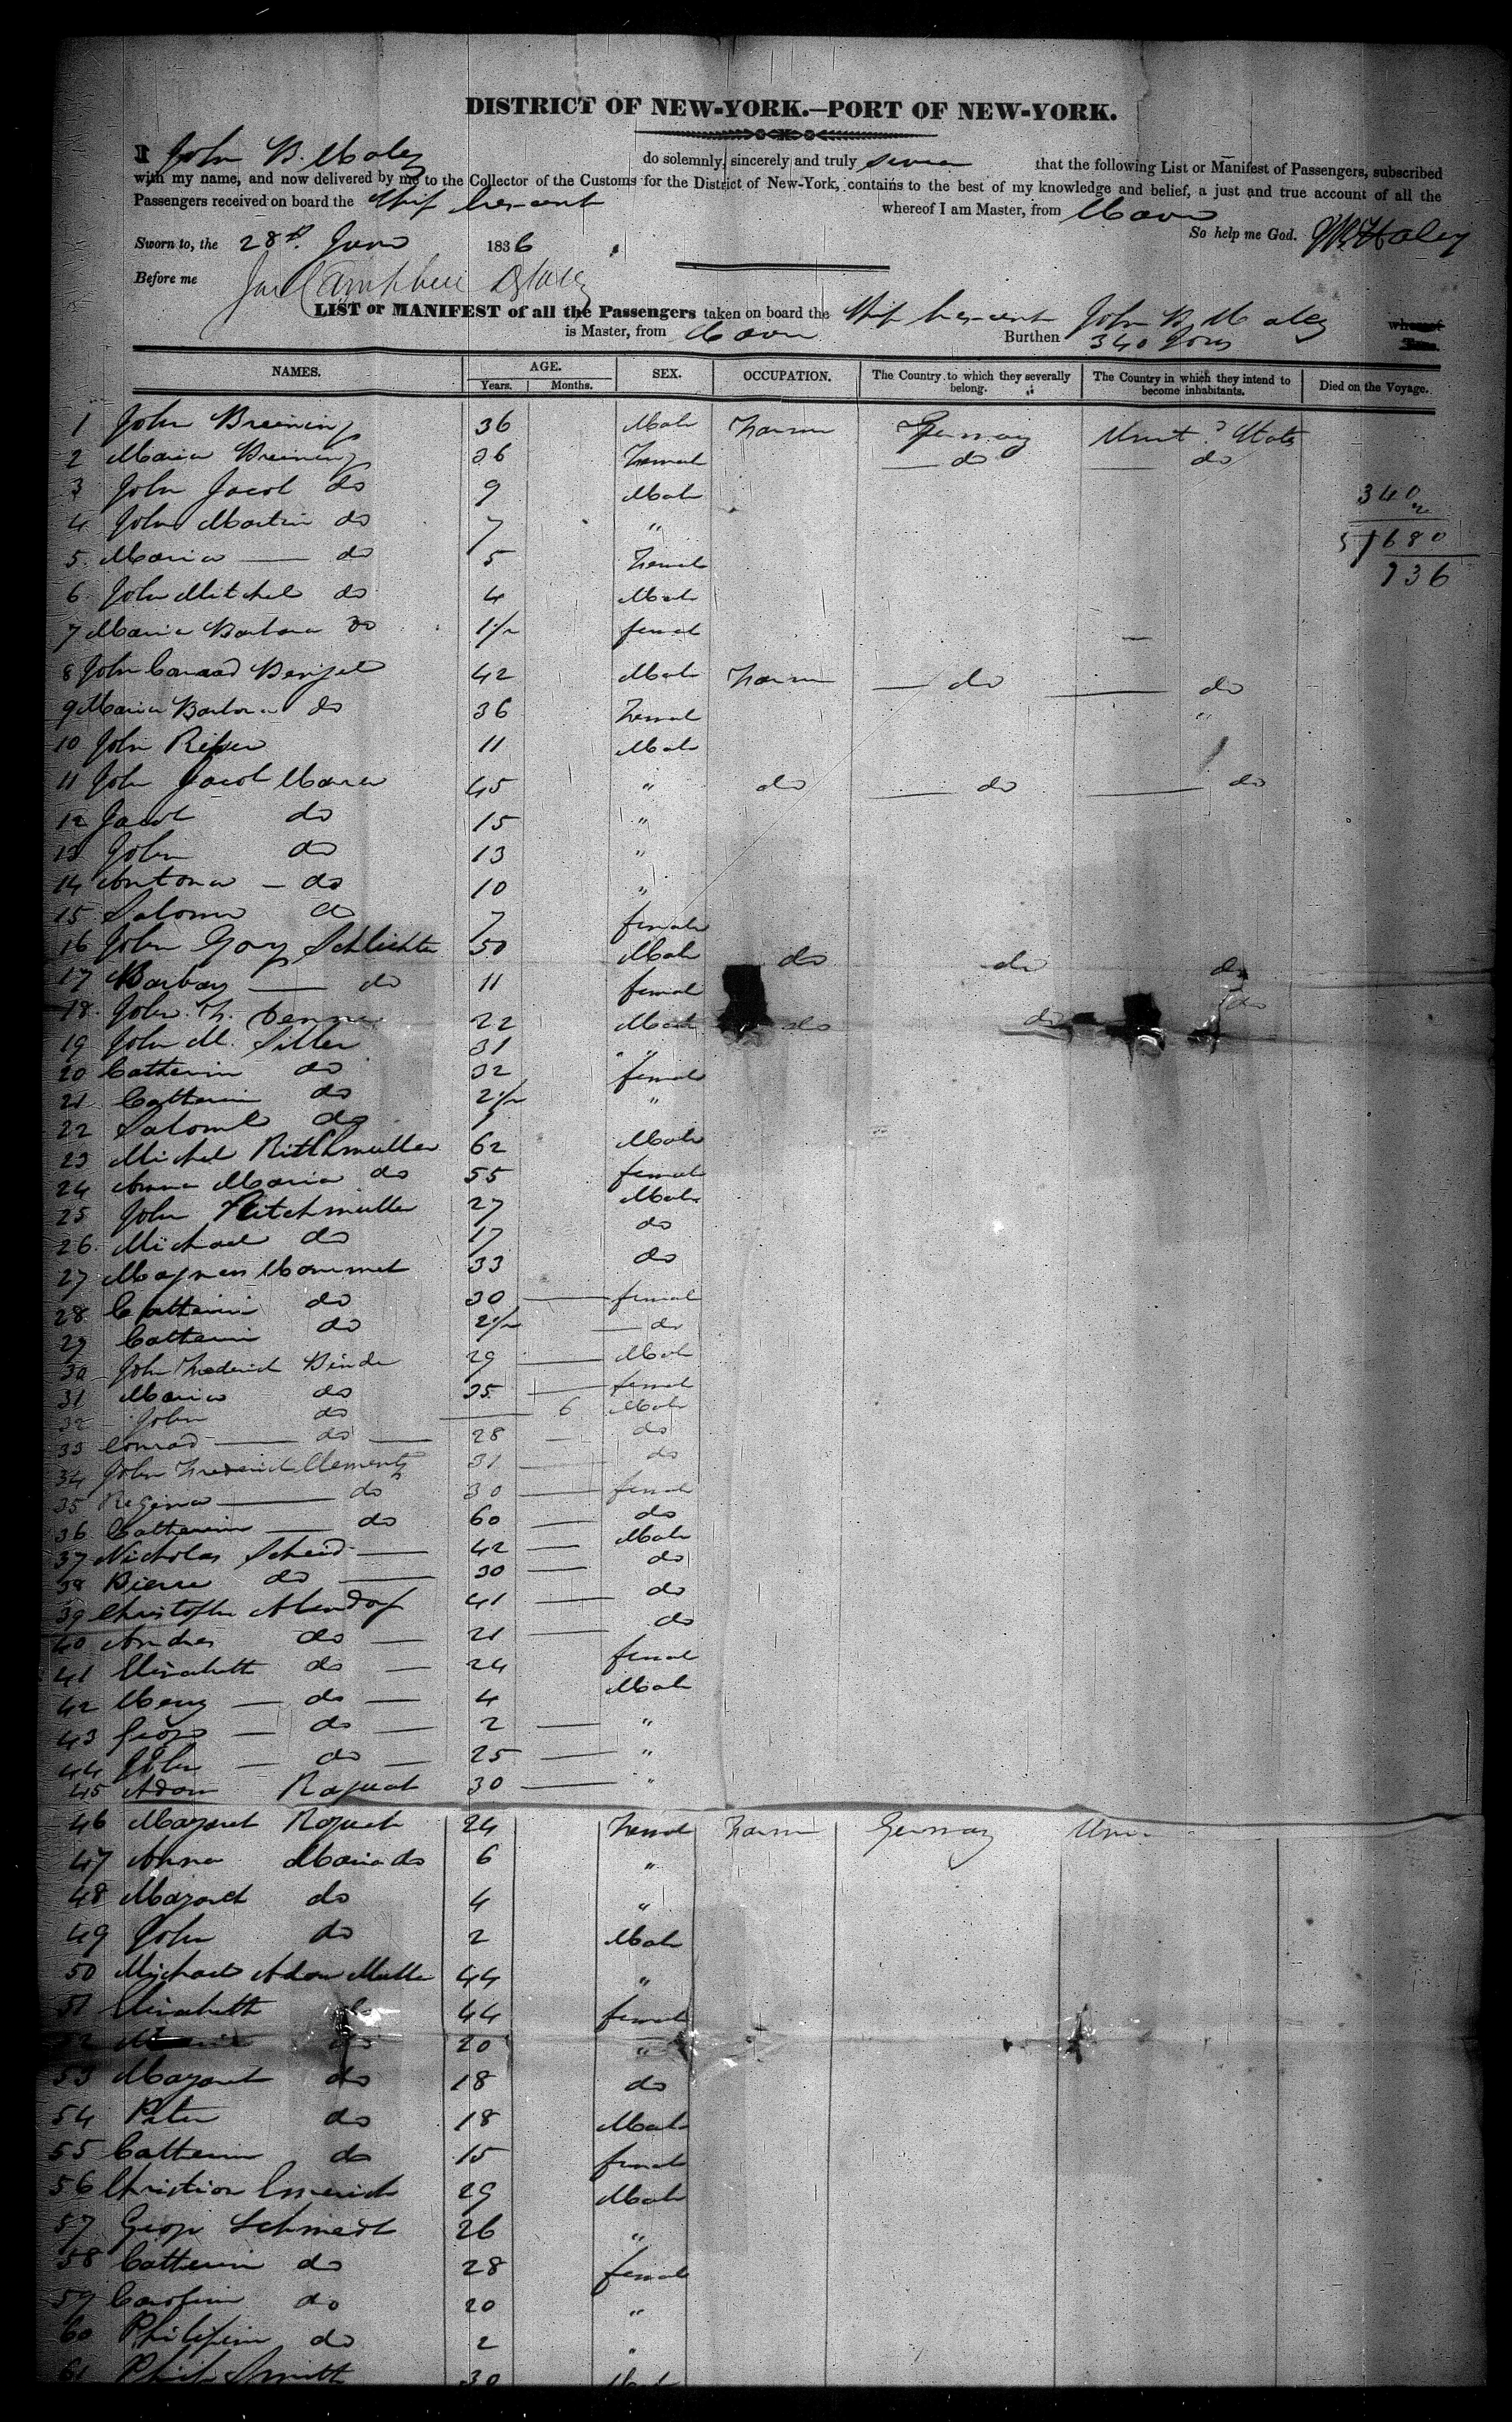 DISTRICT OF NEW-YORK.—PORT OF NEW-YORK.
I John B. Haley do solemnly, sincerely and truly swear that the following List or Manifest of Passengers, subscribed
with my name, and now delivered by me to the Collector of the Customs for the District of New-York, contains to the best of my knowledge and belief, a just and true account of all the
Passengers received on board the Ship Crescent whereof I am Master, from Havre
Sworn to, the 28th June 1836 So help me God. JB Haley
Before me
LIST or MANIFEST of all the Passengers taken on board the Ship Crescent John B Haley whereof
is Master, from Havre Burthen 340 Tons Tons.
NAMES. AGE. SEX. OCCUPATION. The Country to which they severally belong. The Country in which they intend to become inhabitants. Died on the Voyage.
Years. Months.
1 John Breining 36 Male Farm Germany Unit'd States
2 Maria Breining 36 Femal do do
3 John Jacob do 9 Male 340
4 John Martin do 7 " 2
5 Maria do 5 Femal 5 680
6 John Mitchel do 4 Male 136
7 Maria Barbara do 1 1/2 femal
8 John Conrad Bengel 42 Male Farm do do
9 Maria Barbara do 36 Femal "
10 John 11 Male
11 John Jacob 45 " do do do
12 Jacob do 15 "
13 John do 13 "
14 Antona do 10 "
15 Salome do 7 female
16 John Georg Schlichter 50 Male do do do
17 Barbary do 11 female
18 John F. 22 Male do do do
19 John M. Siller 31 "
20 Catherin do 32 female
21 Catherin do 2 1/2 "
22 Salome do 1
23 Michel Ritthmuller 62 Male
24 Anna Maria do 55 female
25 John Ritchmuller 27 Male
26 Michael do 17 do
27 Magnus Hammet 33 do
28 Catherin do 30 female
29 Catherin do 2 1/2 do
30 John Frederick Binder 29 Male
31 Maria do 35 female
32 John do 6 Male
33 Conrad do 28 do
34 John Frederick Clementz 31 do
35 Regina do 30 female
36 Catherine do 60 do
37 Nicholas Scheid 42 Male
38 Pierre do 30 do
39 Christophe Alendorf 41 do
40 Andres do 21 do
41 Elisabetth do 24 female
42 Henry do 4 Male
43 George do 2 "
44 John do 25 "
45 Adam Raquet 30 "
46 Margaret Raquet 24 Femal Farm Germany Uni
47 Anna Maria do 6 "
48 Margaret do 4 "
49 John do 2 Male
50 Michael Adam Muller 44 "
51 Elisabetth do 44 female
52 do 20 "
53 Margaret do 18 do
54 Peter do 18 Male
55 Catherin do 15 female
56 Christian Emerich 29 Male
57 George Schmidt 26 "
58 Catherin do 28 female
59 Carolin do 20 "
60 Philipin do 2 "
61 Philip Smith 30 Male